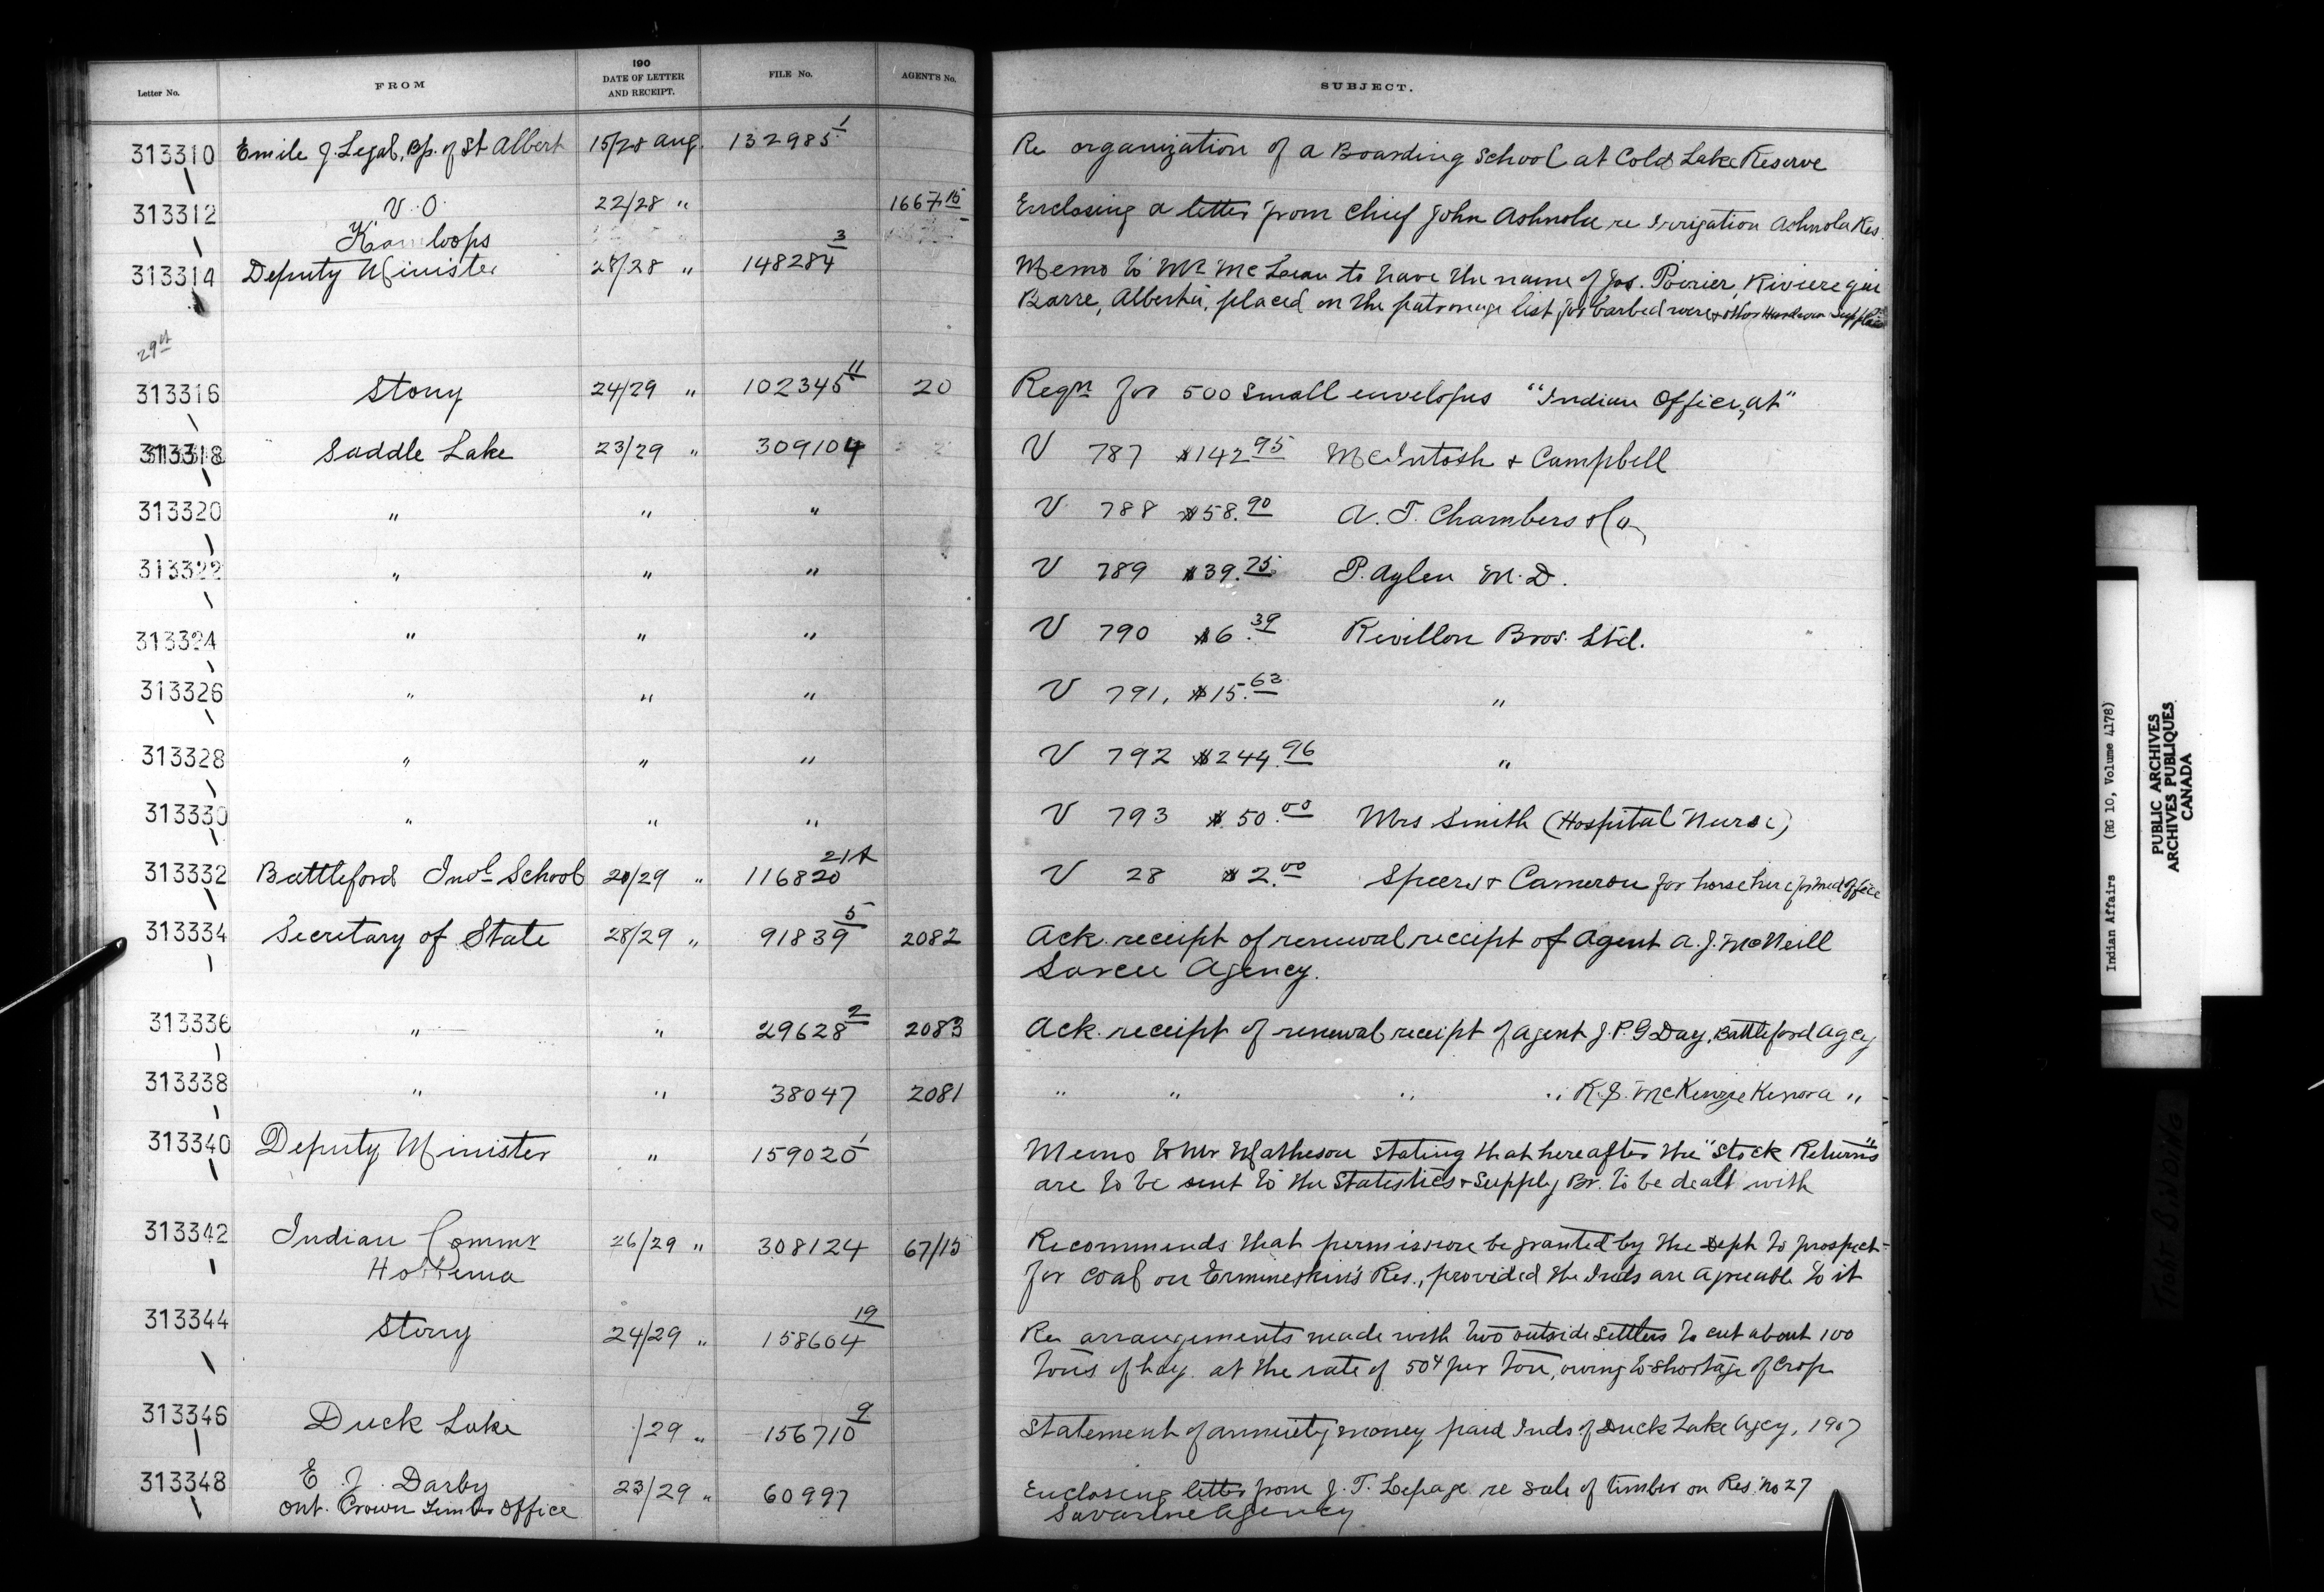 Letter No. FROM 190 DATE OF LETTER AND RECEIPT. FILE No. AGENT'S No. SUBJECT.
313310 Emile J. Legal, Bp. of St Albert 15/28 Aug. 132985 1 Re organization of a Boarding School at Cold Lake Reserve
313312 V.O. Kamloops 22/28 " 1667 15 Enclosing a letter from Chief John Ashnola re Irrigation Ashnola Res.
313314 Deputy Minister 28/28 " 148284 3 Memo to Mr McLean to have the name of Jos. Poirier, Riviere qui
Barre, Alberta, placed on the patronage list for barbed wire & other Hardware Supplies
29th
313316 Stony 24/29 " 102345 11 20 Reqn for 500 small envelopes "Indian Office, at"
313318 Saddle Lake 23/29 " 309104 V 787 $142.95 McIntosh & Campbell
313320 " " " V 788 $58.90 A. T. Chambers & Co
313322 " " " V 789 $39.75 P. Aylen M.D.
313324 " " " V 790 $6.39 Revillon Bros. Ltd.
313326 " " " V 791, $15.62 "
313328 " " " V 792 $244.96 "
313330 " " " V 793 $50.00 Mrs Smith (Hospital Nurse)
313332 Battleford Indl School 20/29 " 116820 21A V 28 $2.00 Speers & Cameron for horse hire for med officer
313334 Secretary of State 28/29 " 91839 5 2082 Ack. receipt of renewal receipt of Agent A. J. McNeill
Sarcee Agency.
313336 " " 29628 2 2083 Ack. receipt of renewal receipt of Agent J. P. G Day, Battleford Agcy
313338 " " 38047 2081 " " " " R. S. McKenzie Kenora "
313340 Deputy Minister " 159020 1 Memo to Mr Matheson stating that hereafter the "Stock Returns"
are to be sent to the Statistics & Supply Br. to be dealt with
313342 Indian Commr 26/29 " 308124 67/15 Recommends that permission be granted by the Dept to prospect
for coal on Ermineskin's Res., provided the Inds are agreeable to it
313344 Stony 24/29 " 158604 19 Re arrangements made with two outside settlers to cut about 100
tons of hay at the rate of 50¢ per ton, owing to shortage of crop
313346 Duck Lake /29 " 156710 9 Statement of annuity money paid Inds of Duck Lake Agcy, 1907
313348 E. J. Darby 23/29 " 60997 Enclosing letter from J. T. Lepage re sale of timber on Res. No 27
Ont. Crown Timber Office Savanne Agency
Indian Affairs (RG 10, Volume 4178)
PUBLIC ARCHIVES
ARCHIVES PUBLIQUES
CANADA